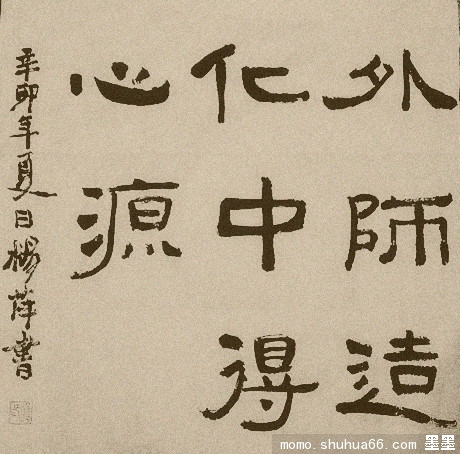 外师造
化中得
心源
辛卯年夏日杨萍书
momo.shuhua66.com 墨墨